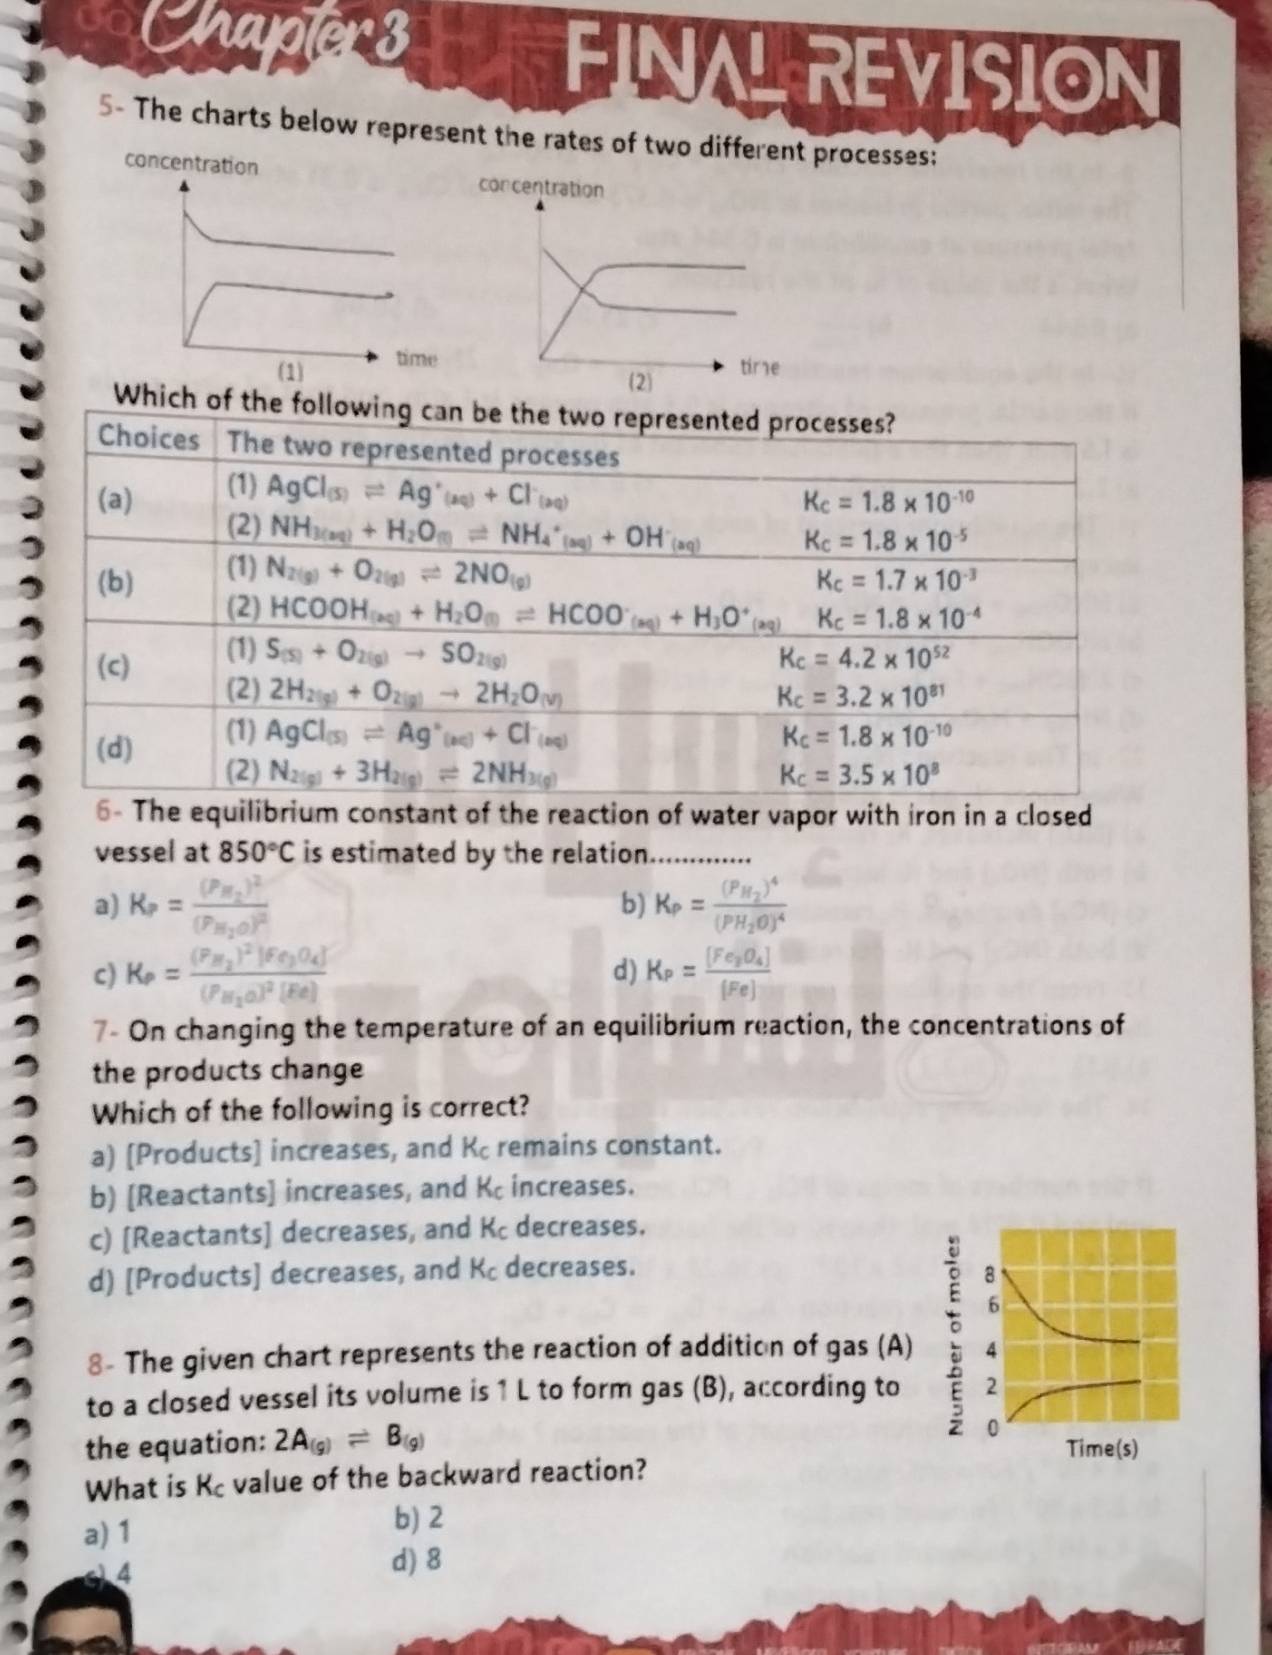 Chapter 3
FINAL REVISION
5- The charts below represent the rates of two different processes:
concentration
concentration
time
time
(1)
(2)
Which of the following can be the two represented processes?
Choices The two represented processes
(a) (1) AgCl(S) ⇌ Ag⁺(aq) + Cl⁻(aq) Kc = 1.8 × 10⁻¹⁰
(2) NH₃(aq) + H₂O(l) ⇌ NH₄⁺(aq) + OH⁻(aq) Kc = 1.8 × 10⁻⁵
(b) (1) N₂(g) + O₂(g) ⇌ 2NO(g) Kc = 1.7 × 10⁻³
(2) HCOOH(aq) + H₂O(l) ⇌ HCOO⁻(aq) + H₃O⁺(aq) Kc = 1.8 × 10⁻⁴
(c) (1) S(S) + O₂(g) → SO₂(g) Kc = 4.2 × 10⁵²
(2) 2H₂(g) + O₂(g) → 2H₂O(v) Kc = 3.2 × 10⁸¹
(d) (1) AgCl(S) ⇌ Ag⁺(aq) + Cl⁻(aq) Kc = 1.8 × 10⁻¹⁰
(2) N₂(g) + 3H₂(g) ⇌ 2NH₃(g) Kc = 3.5 × 10⁸
6- The equilibrium constant of the reaction of water vapor with iron in a closed
vessel at 850°C is estimated by the relation.............
a) KP = (P H₂)² / (P H₂O)² b) KP = (P H₂)⁴ / (PH₂O)⁴
c) KP = (P H₂)² [Fe₃O₄] / (P H₂O)² [Fe] d) KP = [Fe₃O₄] / [Fe]
7- On changing the temperature of an equilibrium reaction, the concentrations of
the products change
Which of the following is correct?
a) [Products] increases, and Kc remains constant.
b) [Reactants] increases, and Kc increases.
c) [Reactants] decreases, and Kc decreases.
d) [Products] decreases, and Kc decreases.
8- The given chart represents the reaction of addition of gas (A)
to a closed vessel its volume is 1 L to form gas (B), according to
the equation: 2A(g) ⇌ B(g)
What is Kc value of the backward reaction?
a) 1 b) 2
c) 4 d) 8
Number of moles
8
6
4
2
0
Time(s)